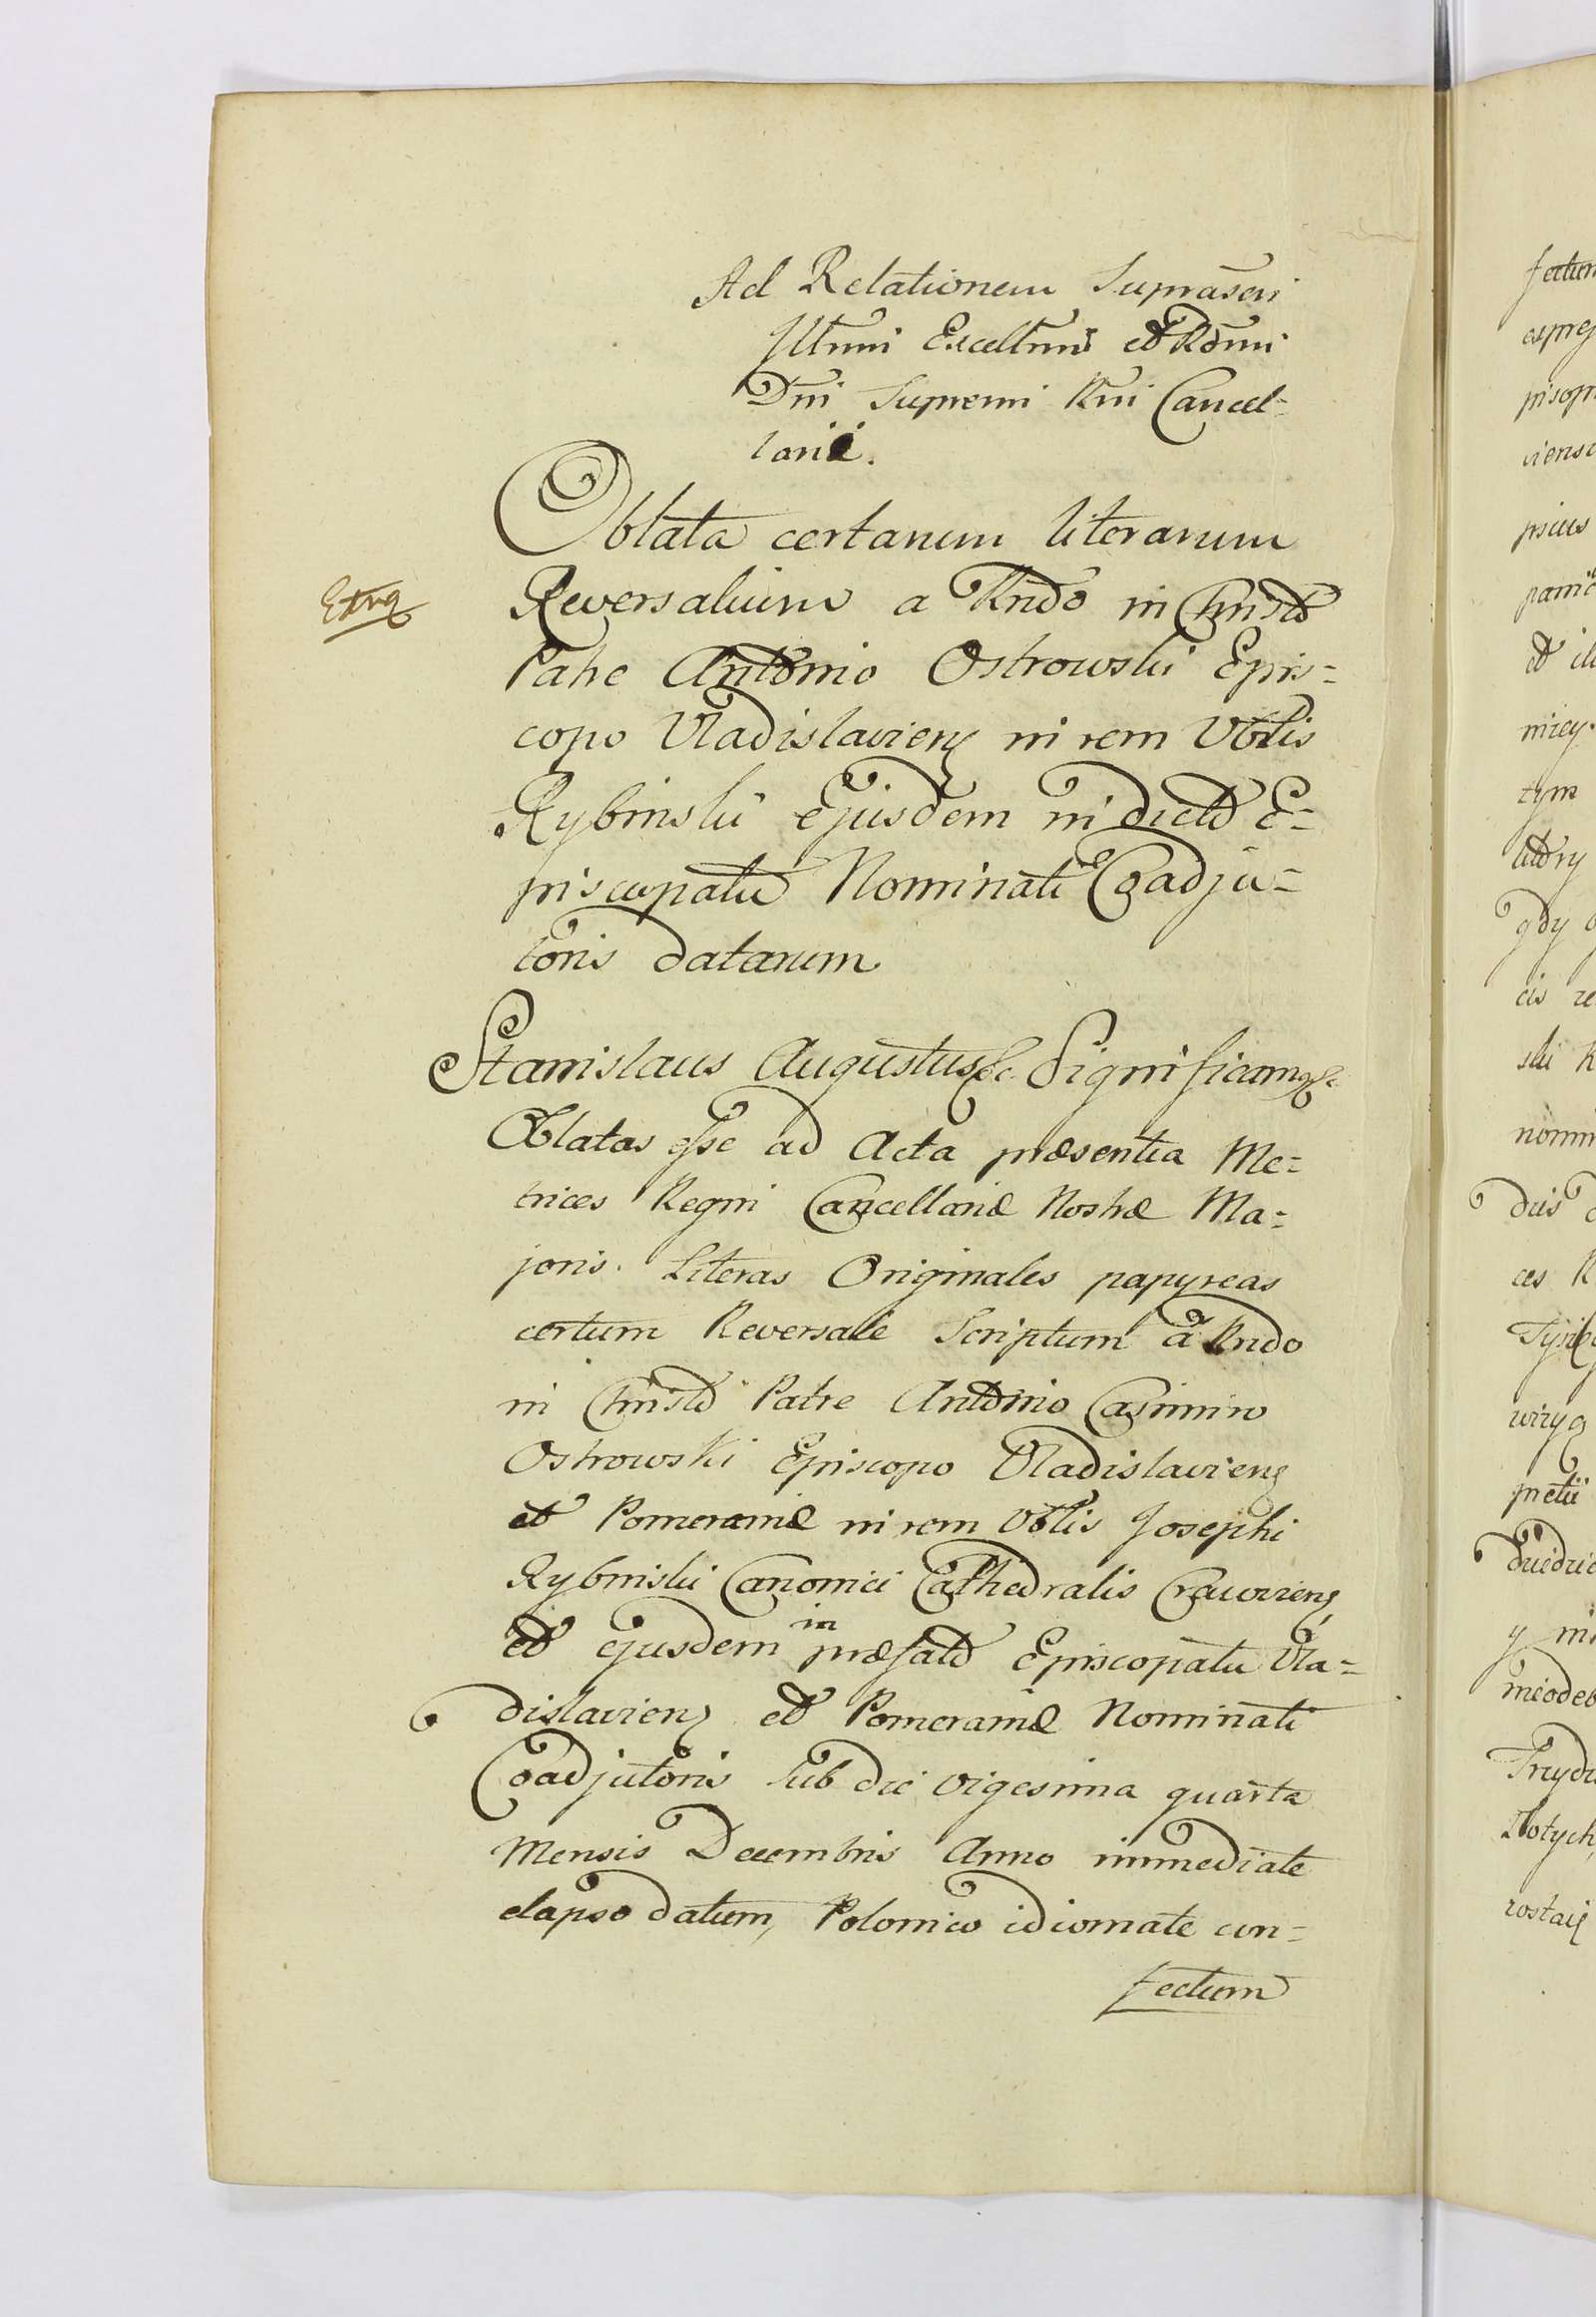 Ad Relationem Supraseri
Illmi Excellmi et Rdmi
Dni Supremi Rni Cancel=
larii.
Oblata certarum literarum
Extrq
Reversalium a Rndo in Christo
Patre Antonio Ostrowski Epis=
copo Vladislavien in rem Vblis
Rybinski ejusdem in dicto E=
piscopatu Nominati Coadju=
toris datarum
Stanislaus Augustus &c. Significamq &c
Oblatas esse ad Acta præsentia Me=
trices Regni Cancellariæ Nostræ Ma=
joris. Literas Originales papyreas
certum Reversale Scriptum à Rndo
in Christo Patre Antonio Casimiro
Ostrowski Episcopo Vladislavien
et Pomeraniæ in rem Vblis Josephi
Rybinski Canonici Cathedralis Cracovien
et ejusdem in præfato Episcopatu Vla=
dislavien et Pomeraniæ Nominati
Coadjutoris sub die vigesima quarta
Mensis Decembris Anno immediate
elapso datum, Polonico idiomate con=
fectum